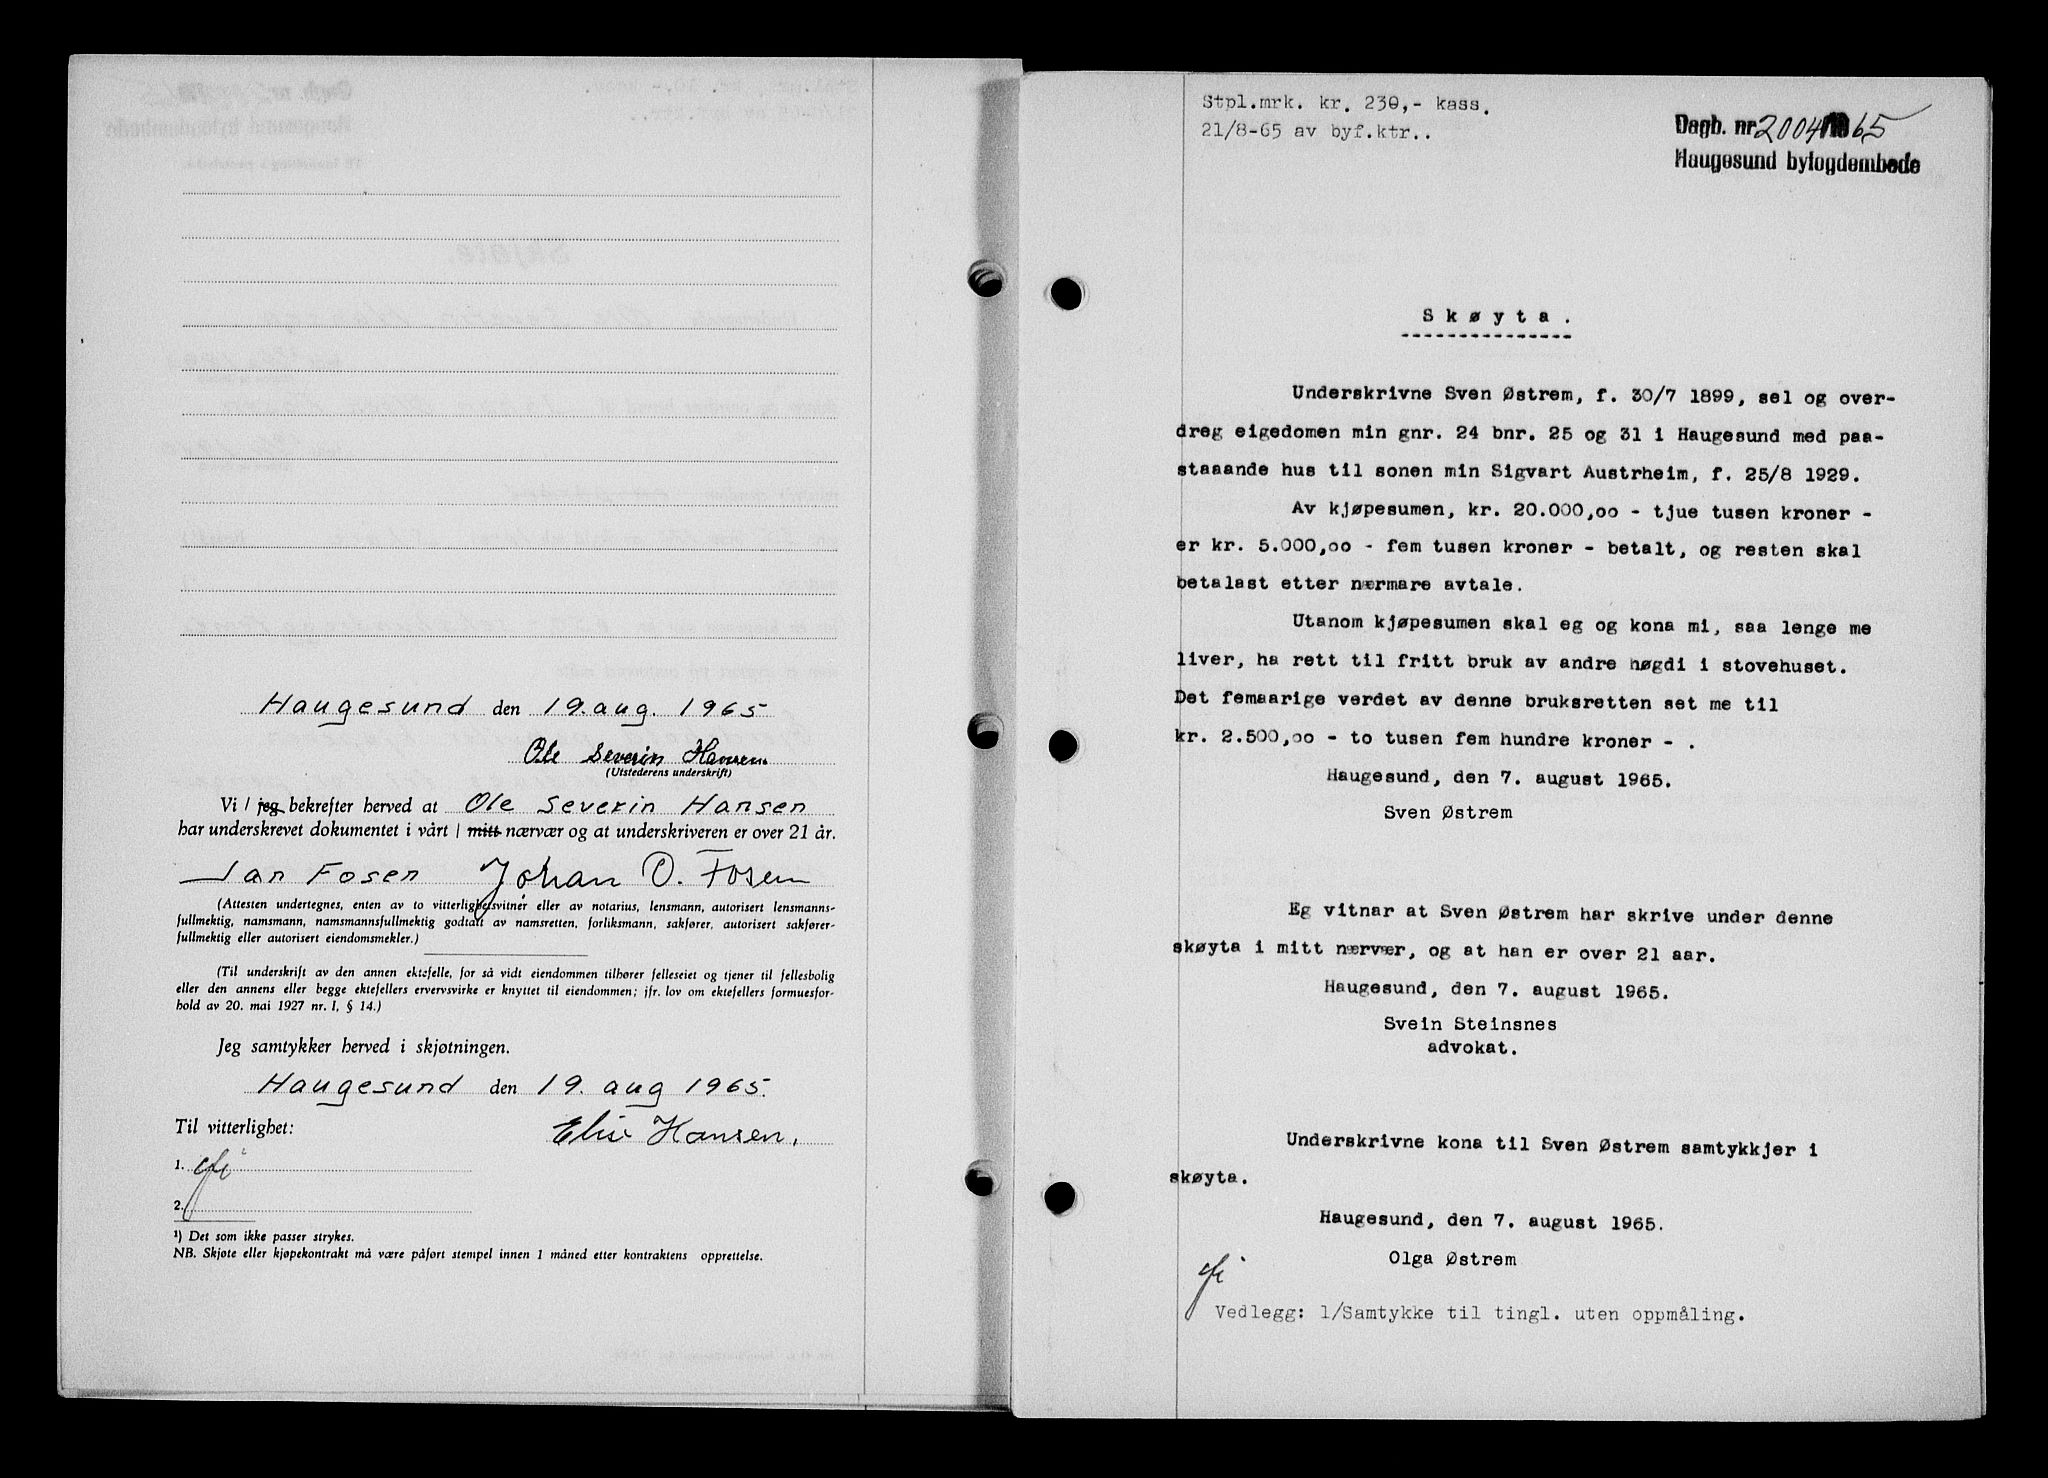 Haugesund den 19. aug. 1965
Ole Severin Hansen
(Utstederens underskrift)
Vi / jeg bekrefter herved at Ole Severin Hansen
har underskrevet dokumentet i vårt / mitt nærvær og at underskriveren er over 21 år.
Jan Fosen Johan O. Fosen
(Attesten undertegnes, enten av to vitterlighetsvitner eller av notarius, lensmann, autorisert lensmanns-
fullmektig, namsmann, namsmannsfullmektig godtatt av namsretten, forliksmann, sakfører, autorisert sakfører-
fullmektig eller autorisert eiendomsmekler.)
(Til underskrift av den annen ektefelle, for så vidt eiendommen tilhører felleseiet og tjener til fellesbolig
eller den annens eller begge ektefellers ervervsvirke er knyttet til eiendommen; jfr. lov om ektefellers formuesfor-
hold av 20. mai 1927 nr. I, § 14.)
Jeg samtykker herved i skjøtningen.
Haugesund den 19. aug 1965.
Til vitterlighet: Elise Hansen.
1.
2.
¹) Det som ikke passer strykes.
NB. Skjøte eller kjøpekontrakt må være påført stempel innen 1 måned etter kontraktens opprettelse.
Stpl.mrk. kr. 230,- kass.
21/8-65 av byf.ktr..
Dagb. nr. 2004 1965
Haugesund byfogdembede
Skøyta.
Underskrivne Sven Østrem, f. 30/7 1899, sel og over-
dreg eigedomen min gnr. 24 bnr. 25 og 31 i Haugesund med paa-
staaande hus til sonen min Sigvart Austrheim, f. 25/8 1929.
Av kjøpesumen, kr. 20.000,oo - tjue tusen kroner -
er kr. 5.000,oo - fem tusen kroner - betalt, og resten skal
betalast etter nærmare avtale.
Utanom kjøpesumen skal eg og kona mi, saa lenge me
liver, ha rett til fritt bruk av andre høgdi i stovehuset.
Det femaarige verdet av denne bruksretten set me til
kr. 2.500,oo - to tusen fem hundre kroner - .
Haugesund, den 7. august 1965.
Sven Østrem
Eg vitnar at Sven Østrem har skrive under denne
skøyta i mitt nærvær, og at han er over 21 aar.
Haugesund, den 7. august 1965.
Svein Steinsnes
advokat.
Underskrivne kona til Sven Østrem samtykkjer i
skøyta.
Haugesund, den 7. august 1965.
Olga Østrem
Vedlegg: 1/Samtykke til tingl. uten oppmåling.